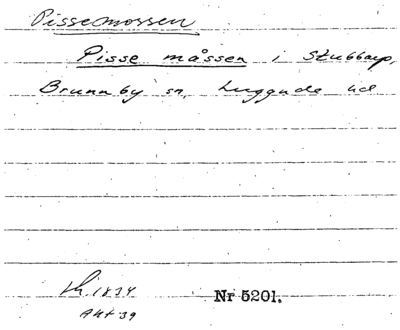 Pissemossen
Pisse måssen i Stubbarp,
Brunnby sn, Luggude hd
Lh 1834 Nr 5201.
Akt 39